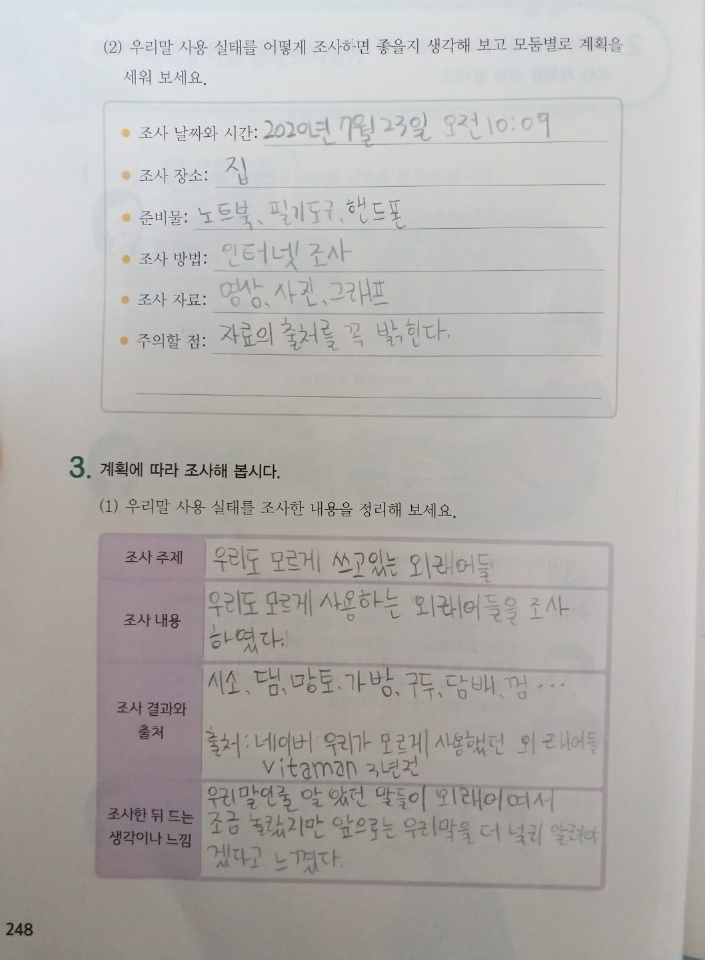 (2) 우리말 사용 실태를 어떻게 조사하면 좋을지 생각해 보고 모둠별로 계획을
세워 보세요.
조사 날짜와 시간: 2020년 7월 23일 오전 10:09
조사 장소: 집
준비물: 노트북, 필기도구, 핸드폰
조사 방법: 인터넷 조사
조사 자료: 영상, 사진, 그래프
주의할 점: 자료의 출처를 꼭 밝힌다.
3. 계획에 따라 조사해 봅시다.
(1) 우리말 사용 실태를 조사한 내용을 정리해 보세요.
조사 주제 우리도 모르게 쓰고있는 외래어들
조사 내용 우리도 모르게 사용하는 외래어들을 조사
하였다.
조사 결과와
출처
시소, 댐, 망토, 가방, 구두, 담배, 껌 …
출처: 네이버 우리가 모르게 사용했던 외래어들
vitaman 3년전
조사한 뒤 드는
생각이나 느낌
우리말인줄 알았던 말들이 외래어여서
조금 놀랐지만 앞으로는 우리말을 더 널리 알려야
겠다고 느꼈다.
248